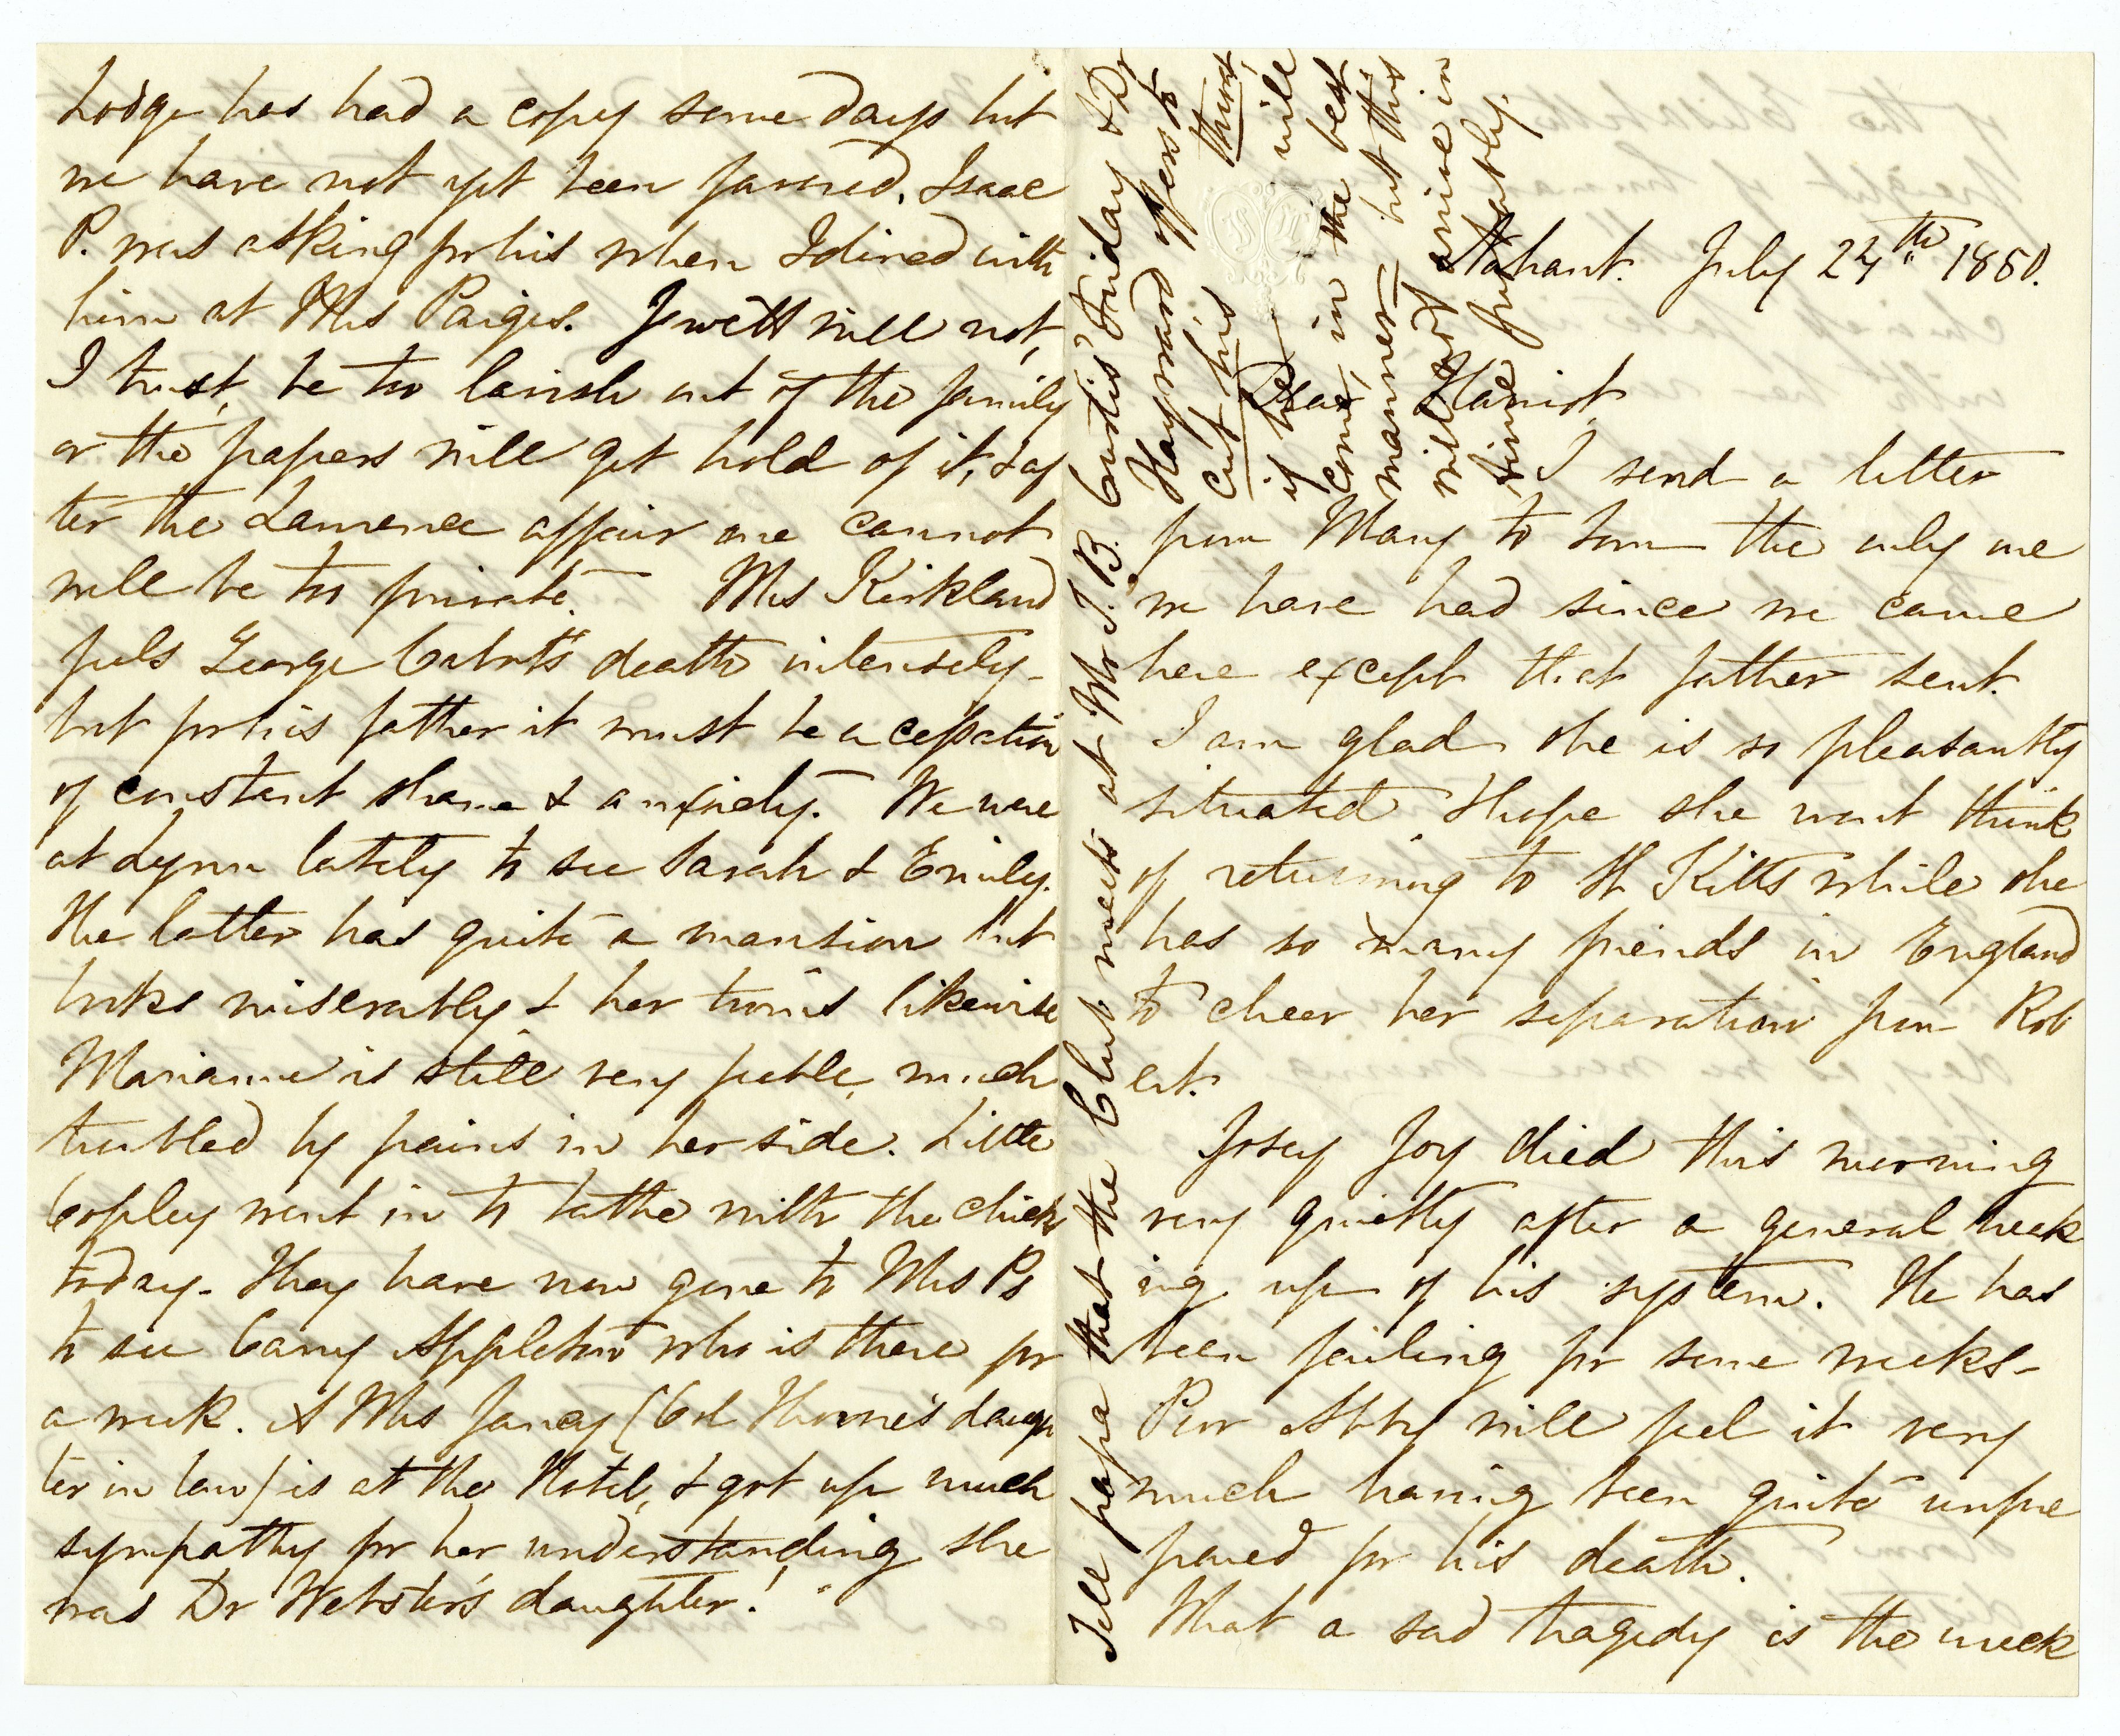 Lodge has had a copy some days but
we have not yet been favored. Isaac
P. was asking for his when I dined with
him at Mrs Paiges. Jewett will not,
I trust, be too lavish out of the family
or the papers will get hold of it, & af
ter the Lawrence affair one cannot
well be too private. — Mrs Kirkland
feels George Cabot's death intensely -
but for his father it must be a cessation
of constant shame & anxiety. We were
at Lynn lately to see Sarah & Emily.
The latter has quite a mansion but
looks miserably & her twins likewise
Marianne is still very feeble, much
troubled by pains in her side. Little
Copley went in to bathe with the chicks
today. They have now gone to Mrs Ps
to see Carry Appleton who is there for
a week. A Mrs Jancy (Col Thorne's daugh
ter in law) is at the Hotel, & got up much
sympathy for her understanding she
was Dr Webster's daughter!
Nahant. July 24th 1850.
Dear Harriot,
I send a letter
from Mary to Tom the only one
we have had since we came
here except that father sent.
I am glad she is so pleasantly
situated. I hope she wont think
of returning to St Kitts while she
has so many friends in England
to cheer her separation from Rob
ert.
Josey Joy died this morning
very quietly after a general break
ing up of his system. He has
been failing for some weeks -
Poor Abby will feel it very
much having been quite unpre
pared for his death.
What a sad tragedy is the wreck
Tell papa that the Club meets at Mr T. B. Curtis' Friday & Dr
Hayward offers to
cut his throat
if he will
come, in the best
manner — but this
will not arrive in
time probably.